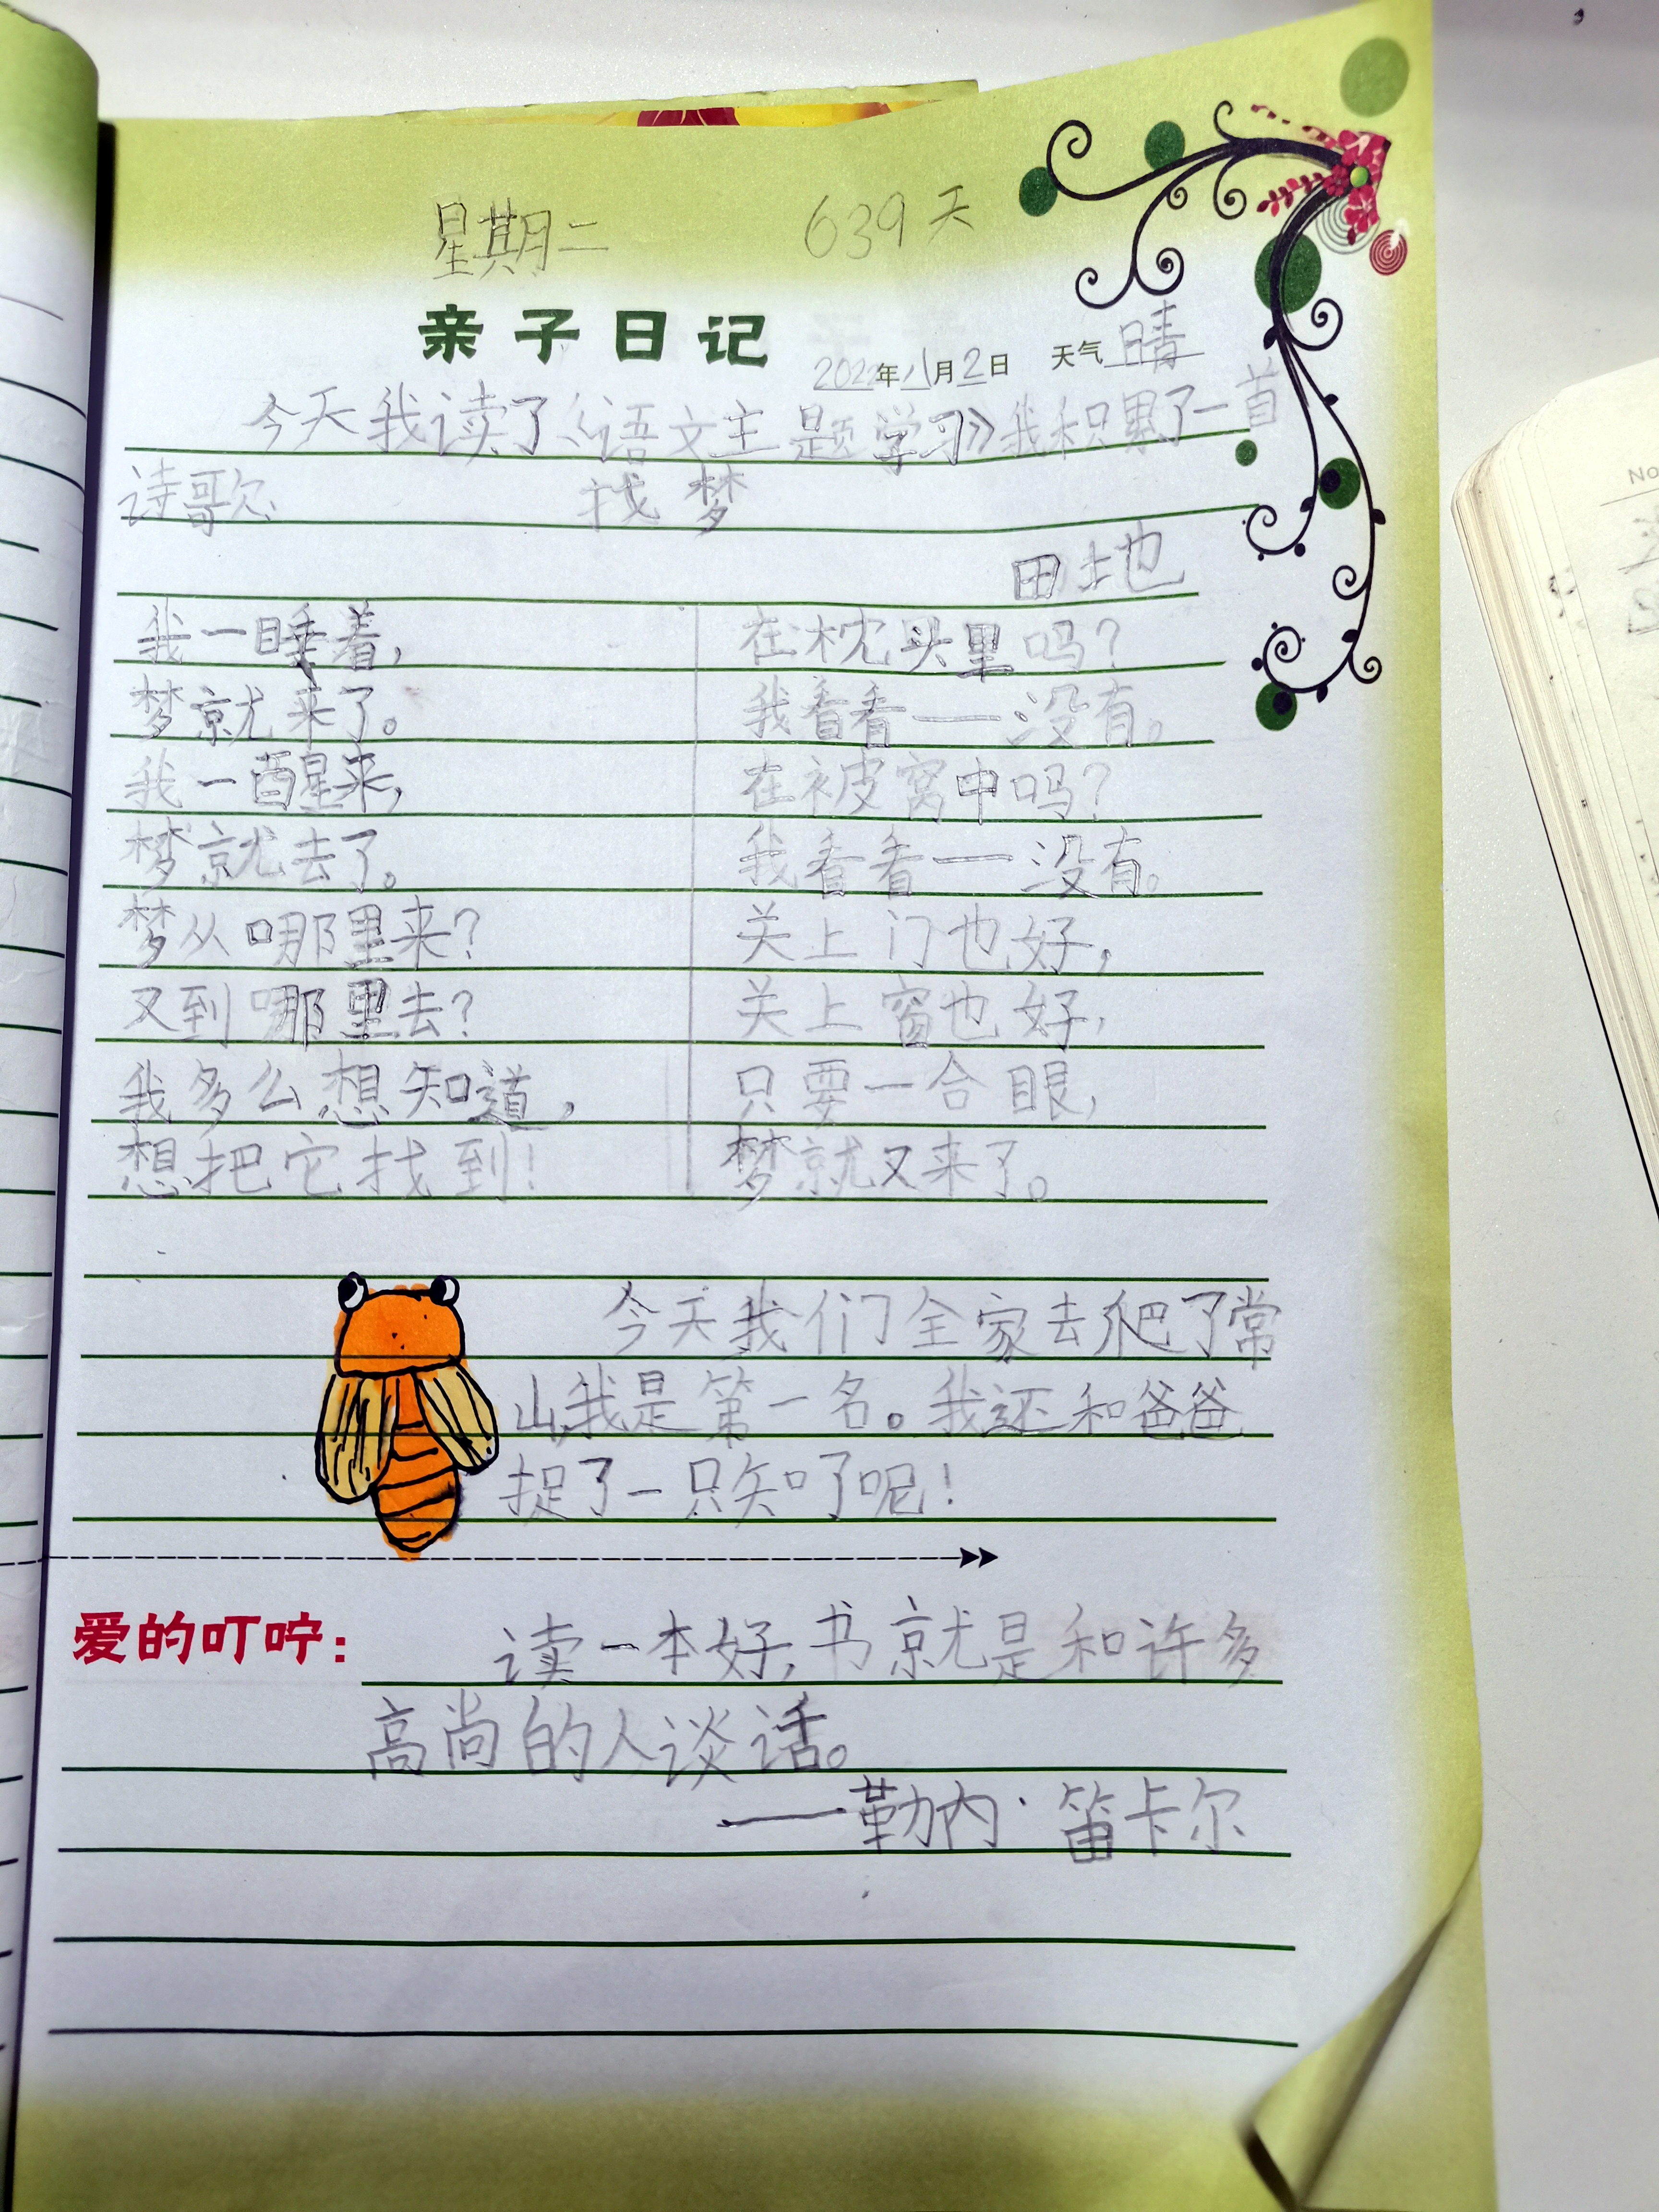 星期二 639天
亲子日记 2022年八月2日 天气晴
今天我读了《语文主题学习》我积累了一首
诗歌
找梦
田地
我一睡着,
梦就来了。
我一醒来,
梦就去了。
梦从哪里来?
又到哪里去?
我多么想知道,
想把它找到!
在枕头里吗?
我看看——没有。
在被窝中吗?
我看看——没有。
关上门也好,
关上窗也好,
只要一合眼,
梦就又来了。
今天我们全家去爬了常
山,我是第一名。我还和爸爸
捉了一只知了呢!
爱的叮咛:
读一本好书就是和许多
高尚的人谈话。
——勒内·笛卡尔